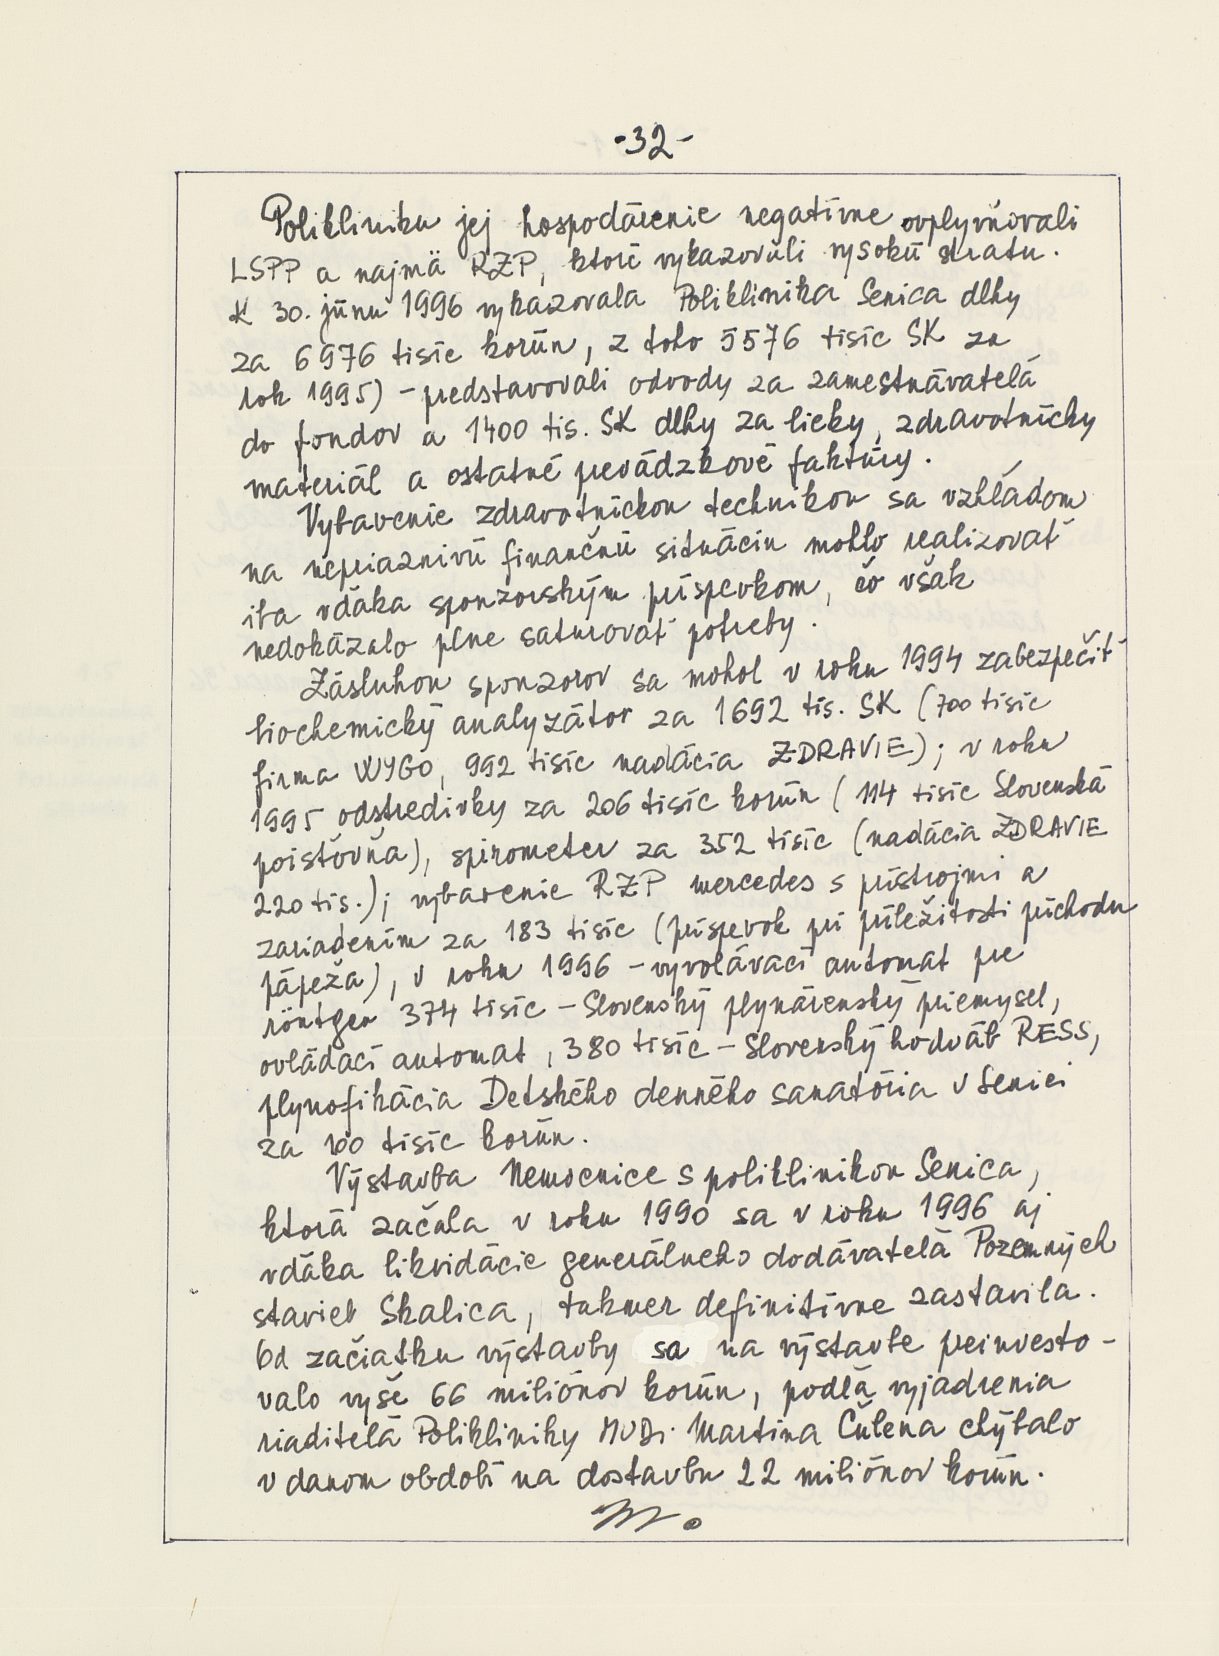 -32-
Polikliniku jej hospodárenie negatívne ovplyvňovali
LSPP a najmä RZP, ktoré vykazovali vysokú stratu.
K 30. júnu 1996 vykazovala Poliklinika Senica dlhy
za 6976 tisíc korún, z toho 5576 tisíc SK za
rok 1995) - predstavovali odvody za zamestnávateľá
do fondov a 1400 tis. SK dlhy za lieky, zdravotnícky
materiál a ostatné prevádzkové faktúry.
Vybavenie zdravotníckou technikou sa vzhľadom
na nepriaznivú finančnú situáciu mohlo realizovať
iba vďaka sponzorským príspevkom, čo však
nedokázalo plne saturovať potreby.
Zásluhou sponzorov sa mohol v roku 1994 zabezpečiť
biochemický analyzátor za 1692 tis. SK (700 tisíc
firma WYGO, 992 tisíc nadácia ZDRAVIE); v roku
1995 odstredivky za 206 tisíc korún (114 tisíc Slovenská
poisťovňa), spirometer za 352 tisíc (nadácia ZDRAVIE
220 tis.); vybavenie RZP mercedes s prístrojmi a
zariadením za 183 tisíc (príspevok pri príležitosti príchodu
pápeža), v roku 1996 - vyvolávací automat pre
röntgen 374 tisíc - Slovenský plynárenský priemysel,
ovládací automat, 380 tisíc - Slovenský hodváb RESS,
plynofikácia Detského denného sanatória v Senici
za 100 tisíc korún.
Výstavba Nemocnice s poliklinikou Senica,
ktorá začala v roku 1990 sa v roku 1996 aj
vďaka likvidácie generálneho dodávateľa Pozemných
stavieb Skalica, takmer definitívne zastavila.
Od začiatku výstavby sa na výstavbe preinvesto-
valo vyše 66 miliónov korún, podľa vyjadrenia
riaditeľa Polikliniky MUDr. Martina Čulena chýbalo
v danom období na dostavbu 22 miliónov korún.